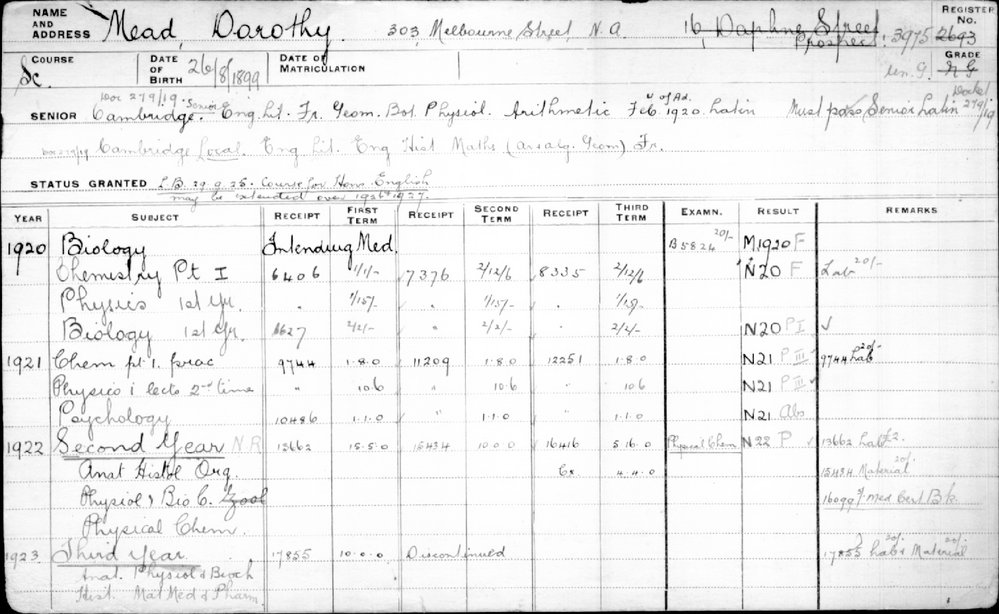 NAME AND ADDRESS Mead, Dorothy. 303, Melbourne Street, N.A. 16, Daphne Street Prospect, 3975 REGISTER No. 2693
COURSE Sc. DATE OF BIRTH 26/8/1899 DATE OF MATRICULATION Sen. G. GRADE N G
SENIOR Cambridge. Senior Eng. Lit. Fr. Geom. Bot. Physiol. Arithmetic Feb. U of Ad. 1920 Latin Must pass Senior Latin Docket 279/19
Doc 279/19 Cambridge Local. Eng Lit. Eng Hist Maths Geom) Fr.
STATUS GRANTED L.B. 29.9.25. Course for Hons. English
may be extended over 1926 & 1927.
YEAR SUBJECT RECEIPT FIRST TERM RECEIPT SECOND TERM RECEIPT THIRD TERM EXAMN. RESULT REMARKS
1920 Biology Intending Med. B5824 20/- M1920 F
Chemistry Pt I 6406 1/1/- 7376 2/12/6 8335 2/12/6 N20 F Lab 20/-
Physics 1st Yr. 1/15/- " 1/15/- " 1/15/-
Biology 1st Yr. 6627 2/2/- " 2/2/- " 2/2/- N20 P I ✓
1921 Chem pt 1. prac 9744 1.8.0 11209 1.8.0 12251 1.8.0 N21 P III 9744 Lab 20/-
Physics i lects 2nd time " 10.6 " 10.6 " 10.6 N21 P III ✓
Psychology 10486 1.1.0 " 1.1.0 " 1.1.0 N21 Abs
1922 Second Year N.R 13662 15.5.0 15434 10.0.0 16416 5.16.0 Physical Chem N22 P ✓ 13662 Lab £2.
Anat Histol Org. Ex. 4.4.0 15434 Material 20/-
Physiol & Bio C. Zool 16099 Med Cert Bk.
Physical Chem.
1923 Third Year 17855 10.0.0 Discontinued 17855 Lab & Material 20/- 20/-
Anat. Physiol & Bioch
Hist. Mat Med & Pharm